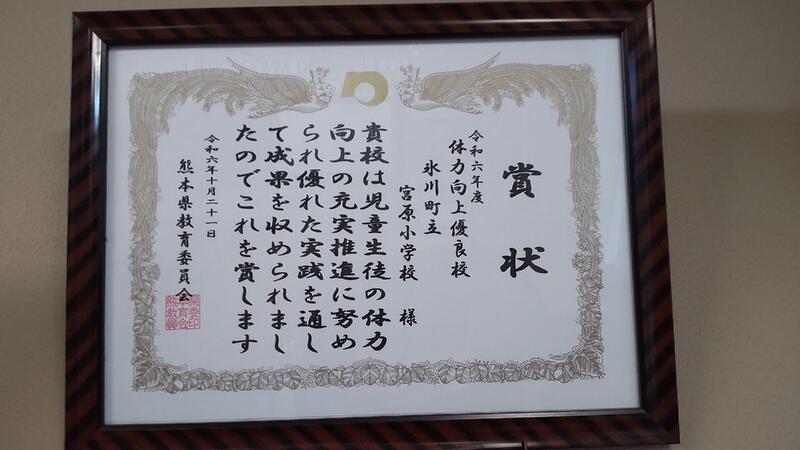 賞状
令和六年度
体力向上優良校
氷川町立
宮原小学校 様
貴校は児童生徒の体力
向上の充実推進に努め
られ優れた実践を通し
て成果を収められまし
たのでこれを賞します
令和六年十月二十一日
熊本県教育委員会